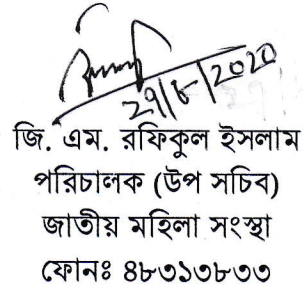 29/6/2020
জি. এম. রফিকুল ইসলাম
পরিচালক (উপ সচিব)
জাতীয় মহিলা সংস্থা
ফোনঃ ৪৮৩১৩৮৩৩